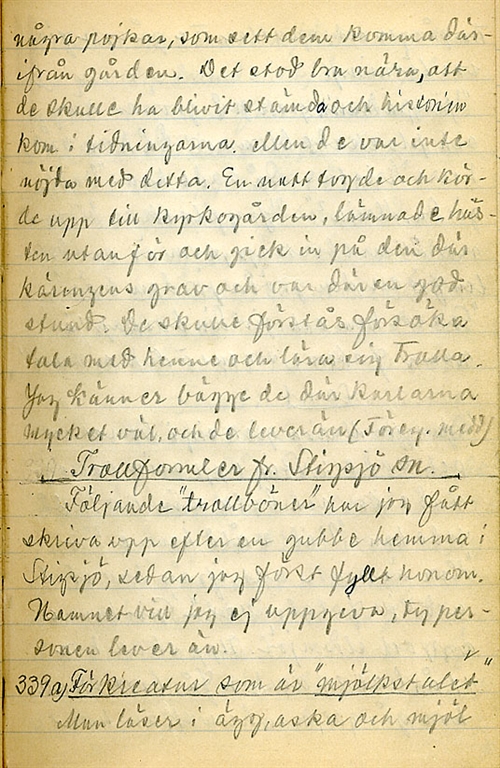 några pojkar, som sett dem komma där-
ifrån gården. Det stod bra nära, att
de skulle ha blivit stämda och historien
kom i tidningarna. Men de var inte
nöjda med detta. En natt togo de och kör-
de upp till kyrkogården, lämnade häs-
ten utanför och gick in på den där
käringens grav och var där en god
stund. De skulle förstås försöka
tala med henne och lära sig trolla.
Jag känner bägge de där karlarna
mycket väl, och de lever än (Föreg. medd)
Trollformler fr. Stigsjö sn.
Följande "trollböner" har jag fått
skriva upp efter en gubbe hemma i
Stigsjö, sedan jag först fyllt honom.
Namnet vill jag ej uppgeva, ty per-
sonen lever än.
339a) För kreatur som är "mjölkstulet"
Man läser i ägg, aska och mjöl